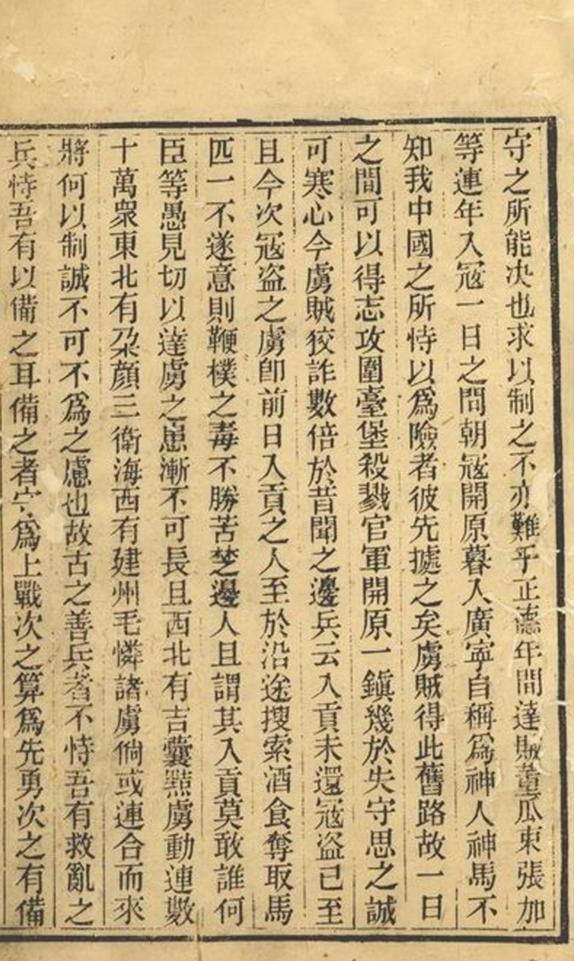 守之所能决也求以制之不亦難乎正德年間達賊董瓜束張加
等連年入冦一日之間朝冦開原暮入廣寧自稱為神人神馬不
知我中國之所恃以為險者彼先據之矣虜賊得此舊路故一日
之間可以得志攻圍臺堡殺戮官軍開原一鎮幾於失守思之誠
可寒心今虜賊狡詐數倍於昔聞之邊兵云入貢未還冦盗已至
且今次冦盗之虜卽前日入貢之人至於沿途搜索酒食奪取馬
匹一不遂意則鞭樸之毒不勝苦楚邊人且謂其入貢莫敢誰何
臣等愚見切以達虜之患漸不可長且西北有吉囊黠虜動連數
十萬衆東北有朶顔三衛海西有建州毛憐諸虜倘或連合而來
將何以制誠不可不為之慮也故古之善兵者不恃吾有救亂之
兵恃吾有以備之耳備之者守為上戰次之算為先勇次之有備